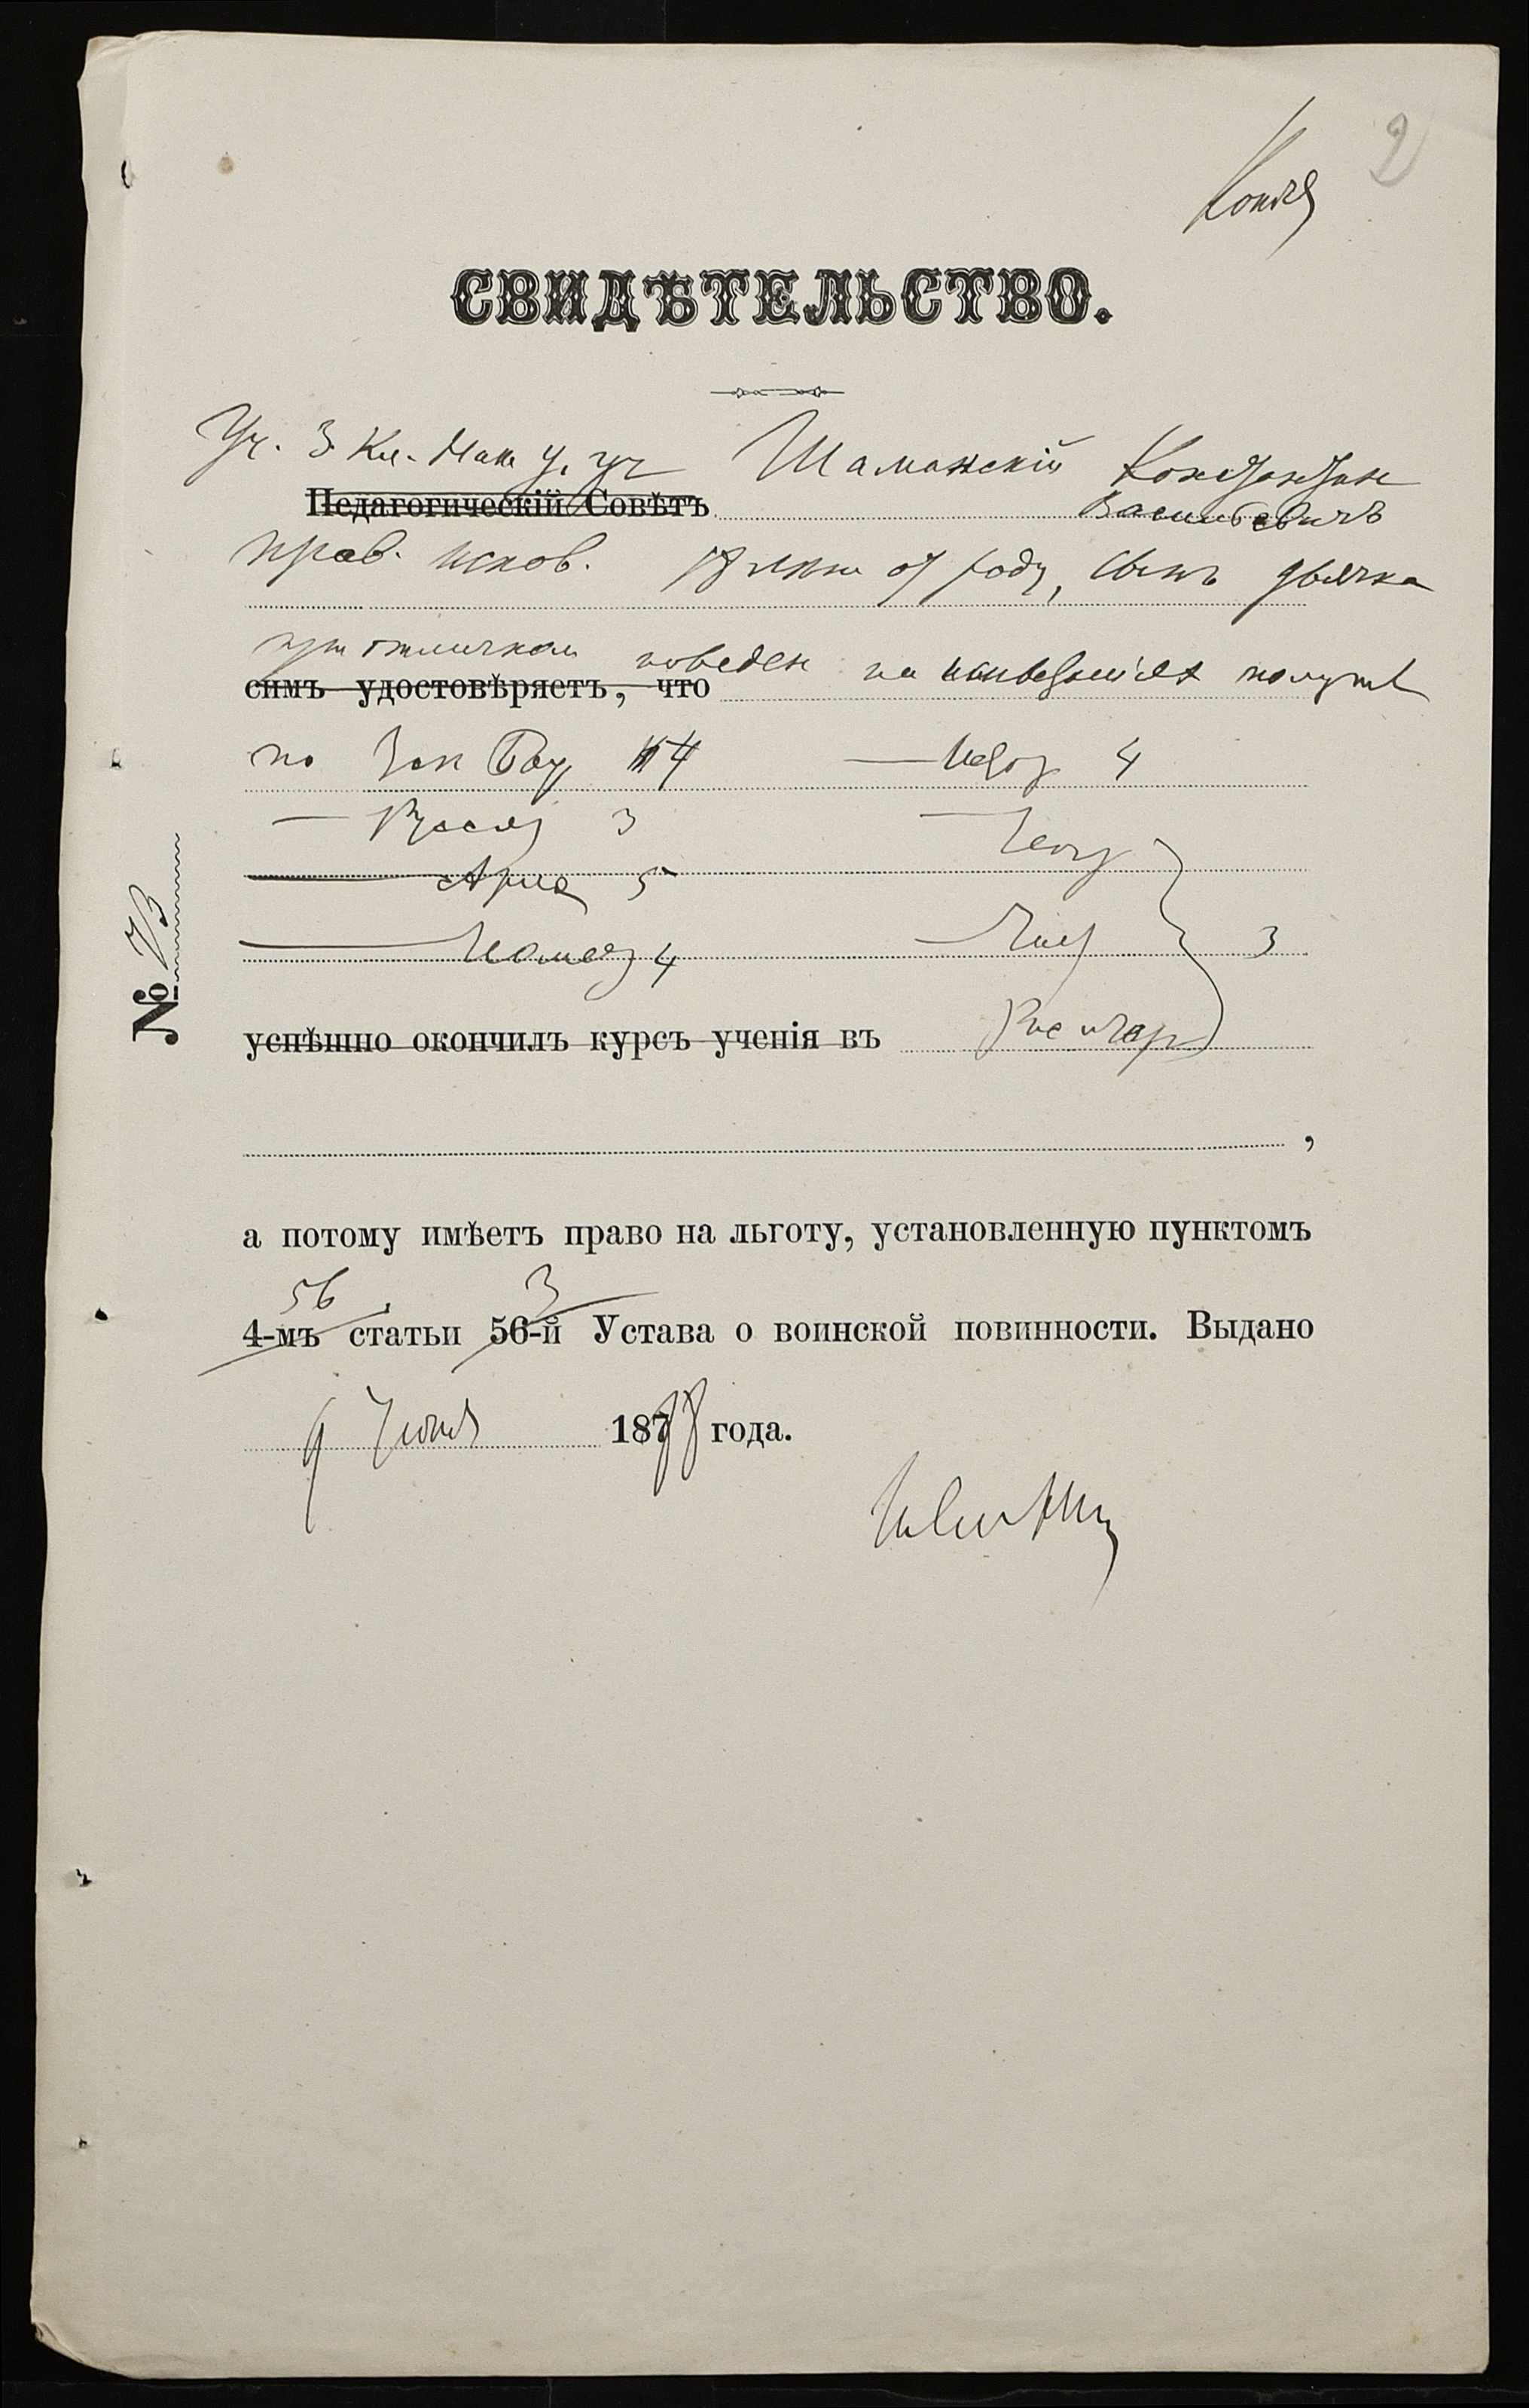 Копія 2
СВИДѢТЕЛЬСТВО.
Уч. 3 Кл. у. уч Шаманскій Константин
Педагогическій Совѣтъ Васильевичъ
прав. испов. 18 лѣтъ от роду, сынъ дьячка
при отличном поведен на испытаніях получил
симъ удостовѣряетъ, что
по Зак Бож 4 — Истор 4
— Русск 3 — Геогр
— Арие 5
— 4 — Чист 3
№ 73
успѣшно окончилъ курсъ ученія въ Рис и Черч
,
а потому имѣетъ право на льготу, установленную пунктомъ
56 3
4-мъ статьи 56-й Устава о воинской повинности. Выдано
9 Іюня 1878 года.